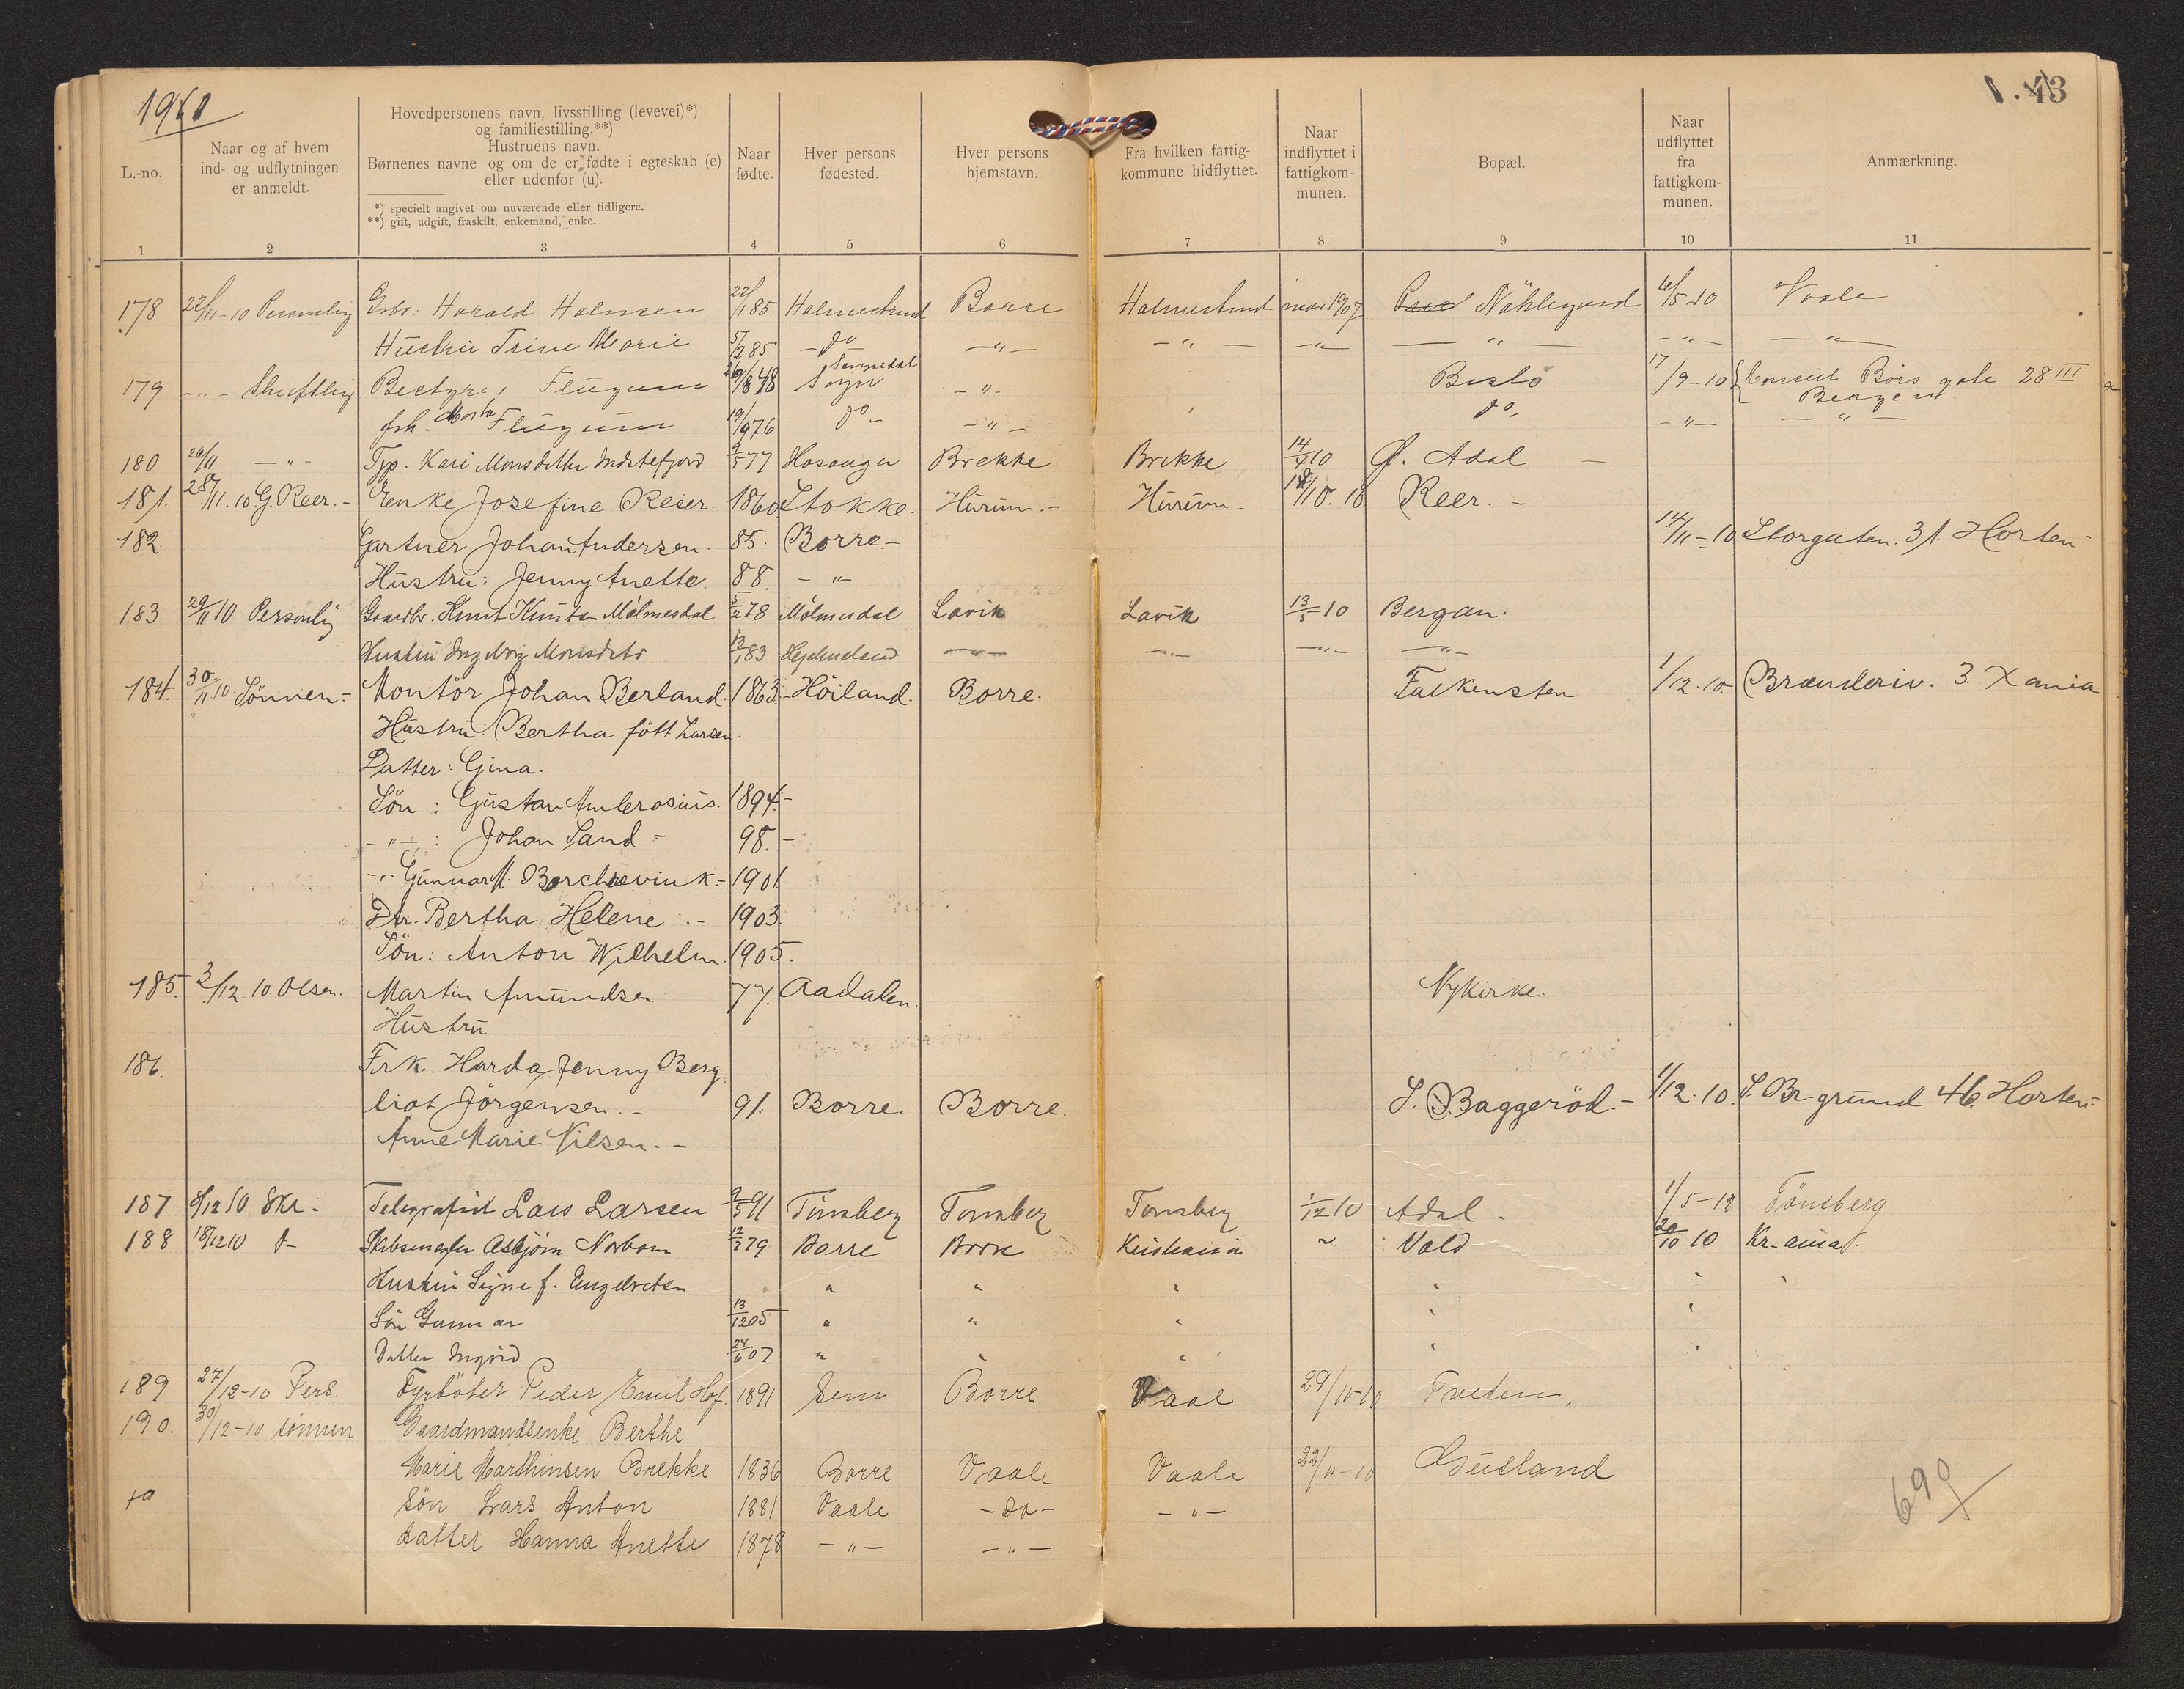 1910
43
L.-no.
Naar og af hvem ind- og udflytningen er anmeldt.
Hovedpersonens navn, livsstilling (levevei)*) og familiestilling.**)
Hustruens navn.
Børnenes navne og om de er fødte i egteskab (e) eller udenfor (u).
*) specielt angivet om nuværende eller tidligere.
**) gift, ugift, fraskilt, enkemand, enke.
Naar fødte.
Hver persons fødested.
Hver persons hjemstavn.
Fra hvilken fattigkommune hidflyttet.
Naar indflyttet i fattigkommunen.
Bopæl.
Naar udflyttet fra fattigkommunen.
Anmærkning.
1 2 3 4 5 6 7 8 9 10 11
178 22/11-10 Personlig Gbr. Harald Halmsen 22/1 85 Holmestrand Borre Holmestrand mai 1907 Nøklegaard 6/5-10 Vaale
Hustru Trine Marie 5/2 85 - do - " - - " - - " - - " - - " - - " -
179 - " - Skriftlig Bestyrer Flugum 48 Sogn - " - Bislö 17/9-10 Consul Börs gate 28 III Bergen
frk. Flugum 19/9 76 do - - " - do - " - - " -
180 26/11 - " - Typ. Kari Monsdatter Indrefjord 9/5 77 Hosanger Brekke Brekke 14/9 10 Ø. Adal
181. 28/11.10. G. Reer.- Enke Josefine Reier. 1860 Stokke. Hurum.- Hurum- 18/10.10 Reer.-
182. Gartner Johan Andersen. 85. Borre.- 14/11-10 Storgaten. 31 Horten.-
Hustru: Jenny Anette. 88. - " -
183 29/11 10 Personlig Gaardbr. Knut Knutsen Mölmesdal 5/2 78 Mölmesdal Lavik Lavik 13/5-10 Bergan.
Hustru Ingeborg Monsdtr 13/1 83 - " - - " - - " - - " -
184. 30/11 10. Sönnen.- Montör Johan Berland. 1863.- Höiland. Borre. Falkensten 1/12.10- Brænderiv. 3. Xania
Hustru Bertha fött Larsen.
Datter: Gina.
Sön: Gustav Ambrosius. 1894.-
- " -: Johan Sand - 98.-
- " - Gunnar M. Borchrevink.- 1901
Dtr. Bertha Helene.- 1903.
Sön: Anton Wilhelm. 1905.
185. 3/12.10. Olsen. Martin Amundsen 77 Aadalen. Nykirke.
Hustru
186. Frk. Harda Jenny Berg-
liot Jörgensen.- 91. Borre. Borre. S. Baggeröd.- 1/12.10. S. Br. grund 46. Horten.-
Anne Marie Nilsen.-
187 8/12 10. Skr.- Telegrafist Lars Larsen 9/5 91 Tönsberg Tönsberg Tönsberg 1/12 10 Adal. 1/5-12 Tönsberg
188 18/12 10 d- Skibsmegler Asbjörn Norbom 12/7 79 Borre Borre Kristiania " Vold 20/10 10 Kr.-ania.
Hustru Signe f. Engebretsen " " " " " "
Sön Gunnar 13/12 05 " " " " "
Datter Ingrid 24/6 07 " " " " "
189 27/12-10 Pers. Fyrböter Peder Emil Hof. 1891 Sem Borre Vaale 29/10-10 Tveten.
190. 30/12-10 sönnen Gaardmandsenke Berthe
Marie Marthinsen Brekke 1836 Borre Vaale Vaale 22/11-10 Gusland
sön Lars Anton 1881 Vaale - do - - " -
datter Hanna Anette 1878 - " - - " -
690